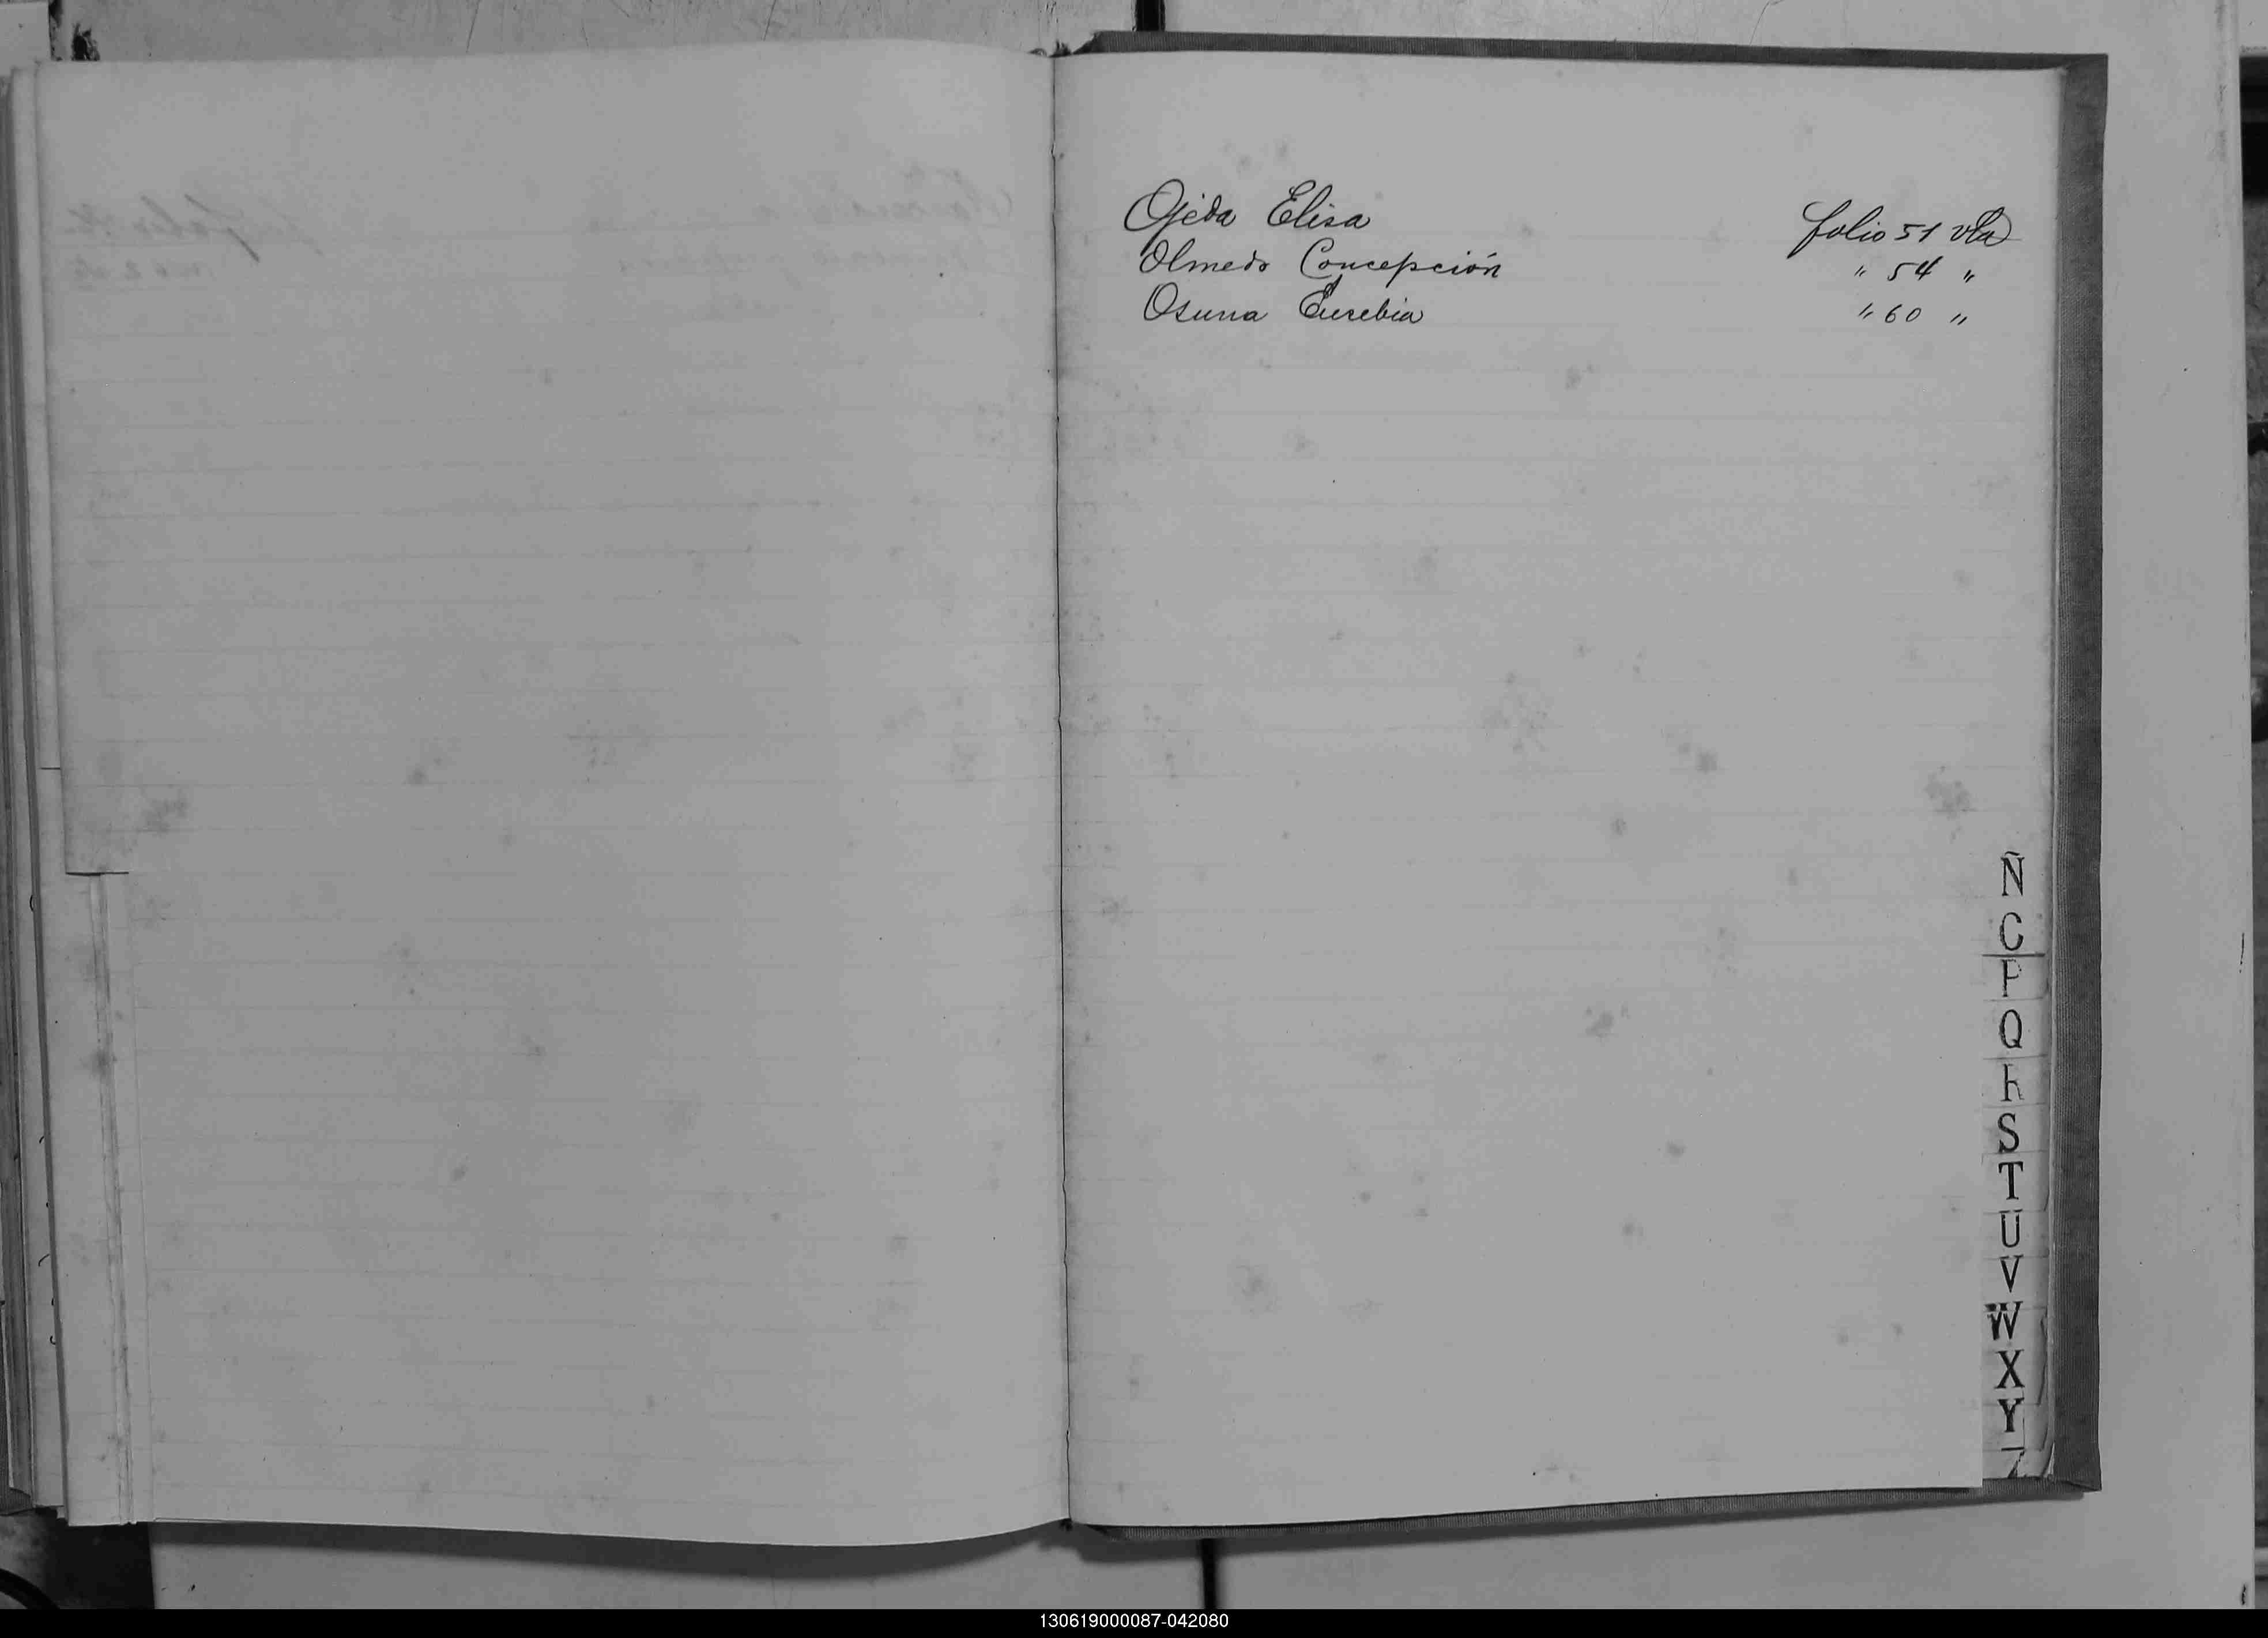 Ojeda Elisa folio 51 vta
Olmedo Concepción " 54 "
Osuna Eusebia " 60 "
Ñ
O
P
Q
R
S
T
U
V
W
X
Y
Z
130619000087-042080